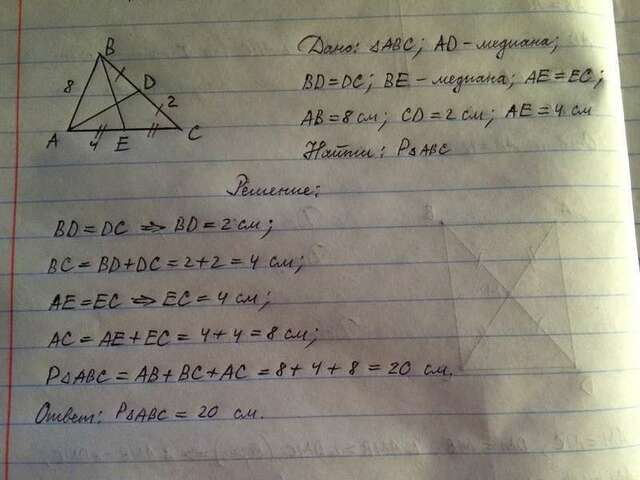 Дано: △ABC; AD - медиана;
BD = DC; BE - медиана; AE = EC;
AB = 8 см; CD = 2 см; AE = 4 см
Найти: P△ABC
B
8
D
2
A
4
E
C
Решение:
BD = DC ⇒ BD = 2 см;
BC = BD + DC = 2 + 2 = 4 см;
AE = EC ⇒ EC = 4 см;
AC = AE + EC = 4 + 4 = 8 см;
P△ABC = AB + BC + AC = 8 + 4 + 8 = 20 см.
Ответ: P△ABC = 20 см.